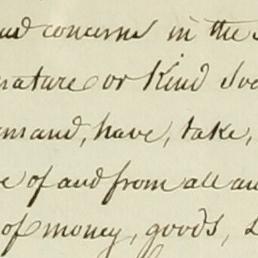 and concerns in the
nature or Kind Soe
demand, have, take,
of and from all an
of money, goods,